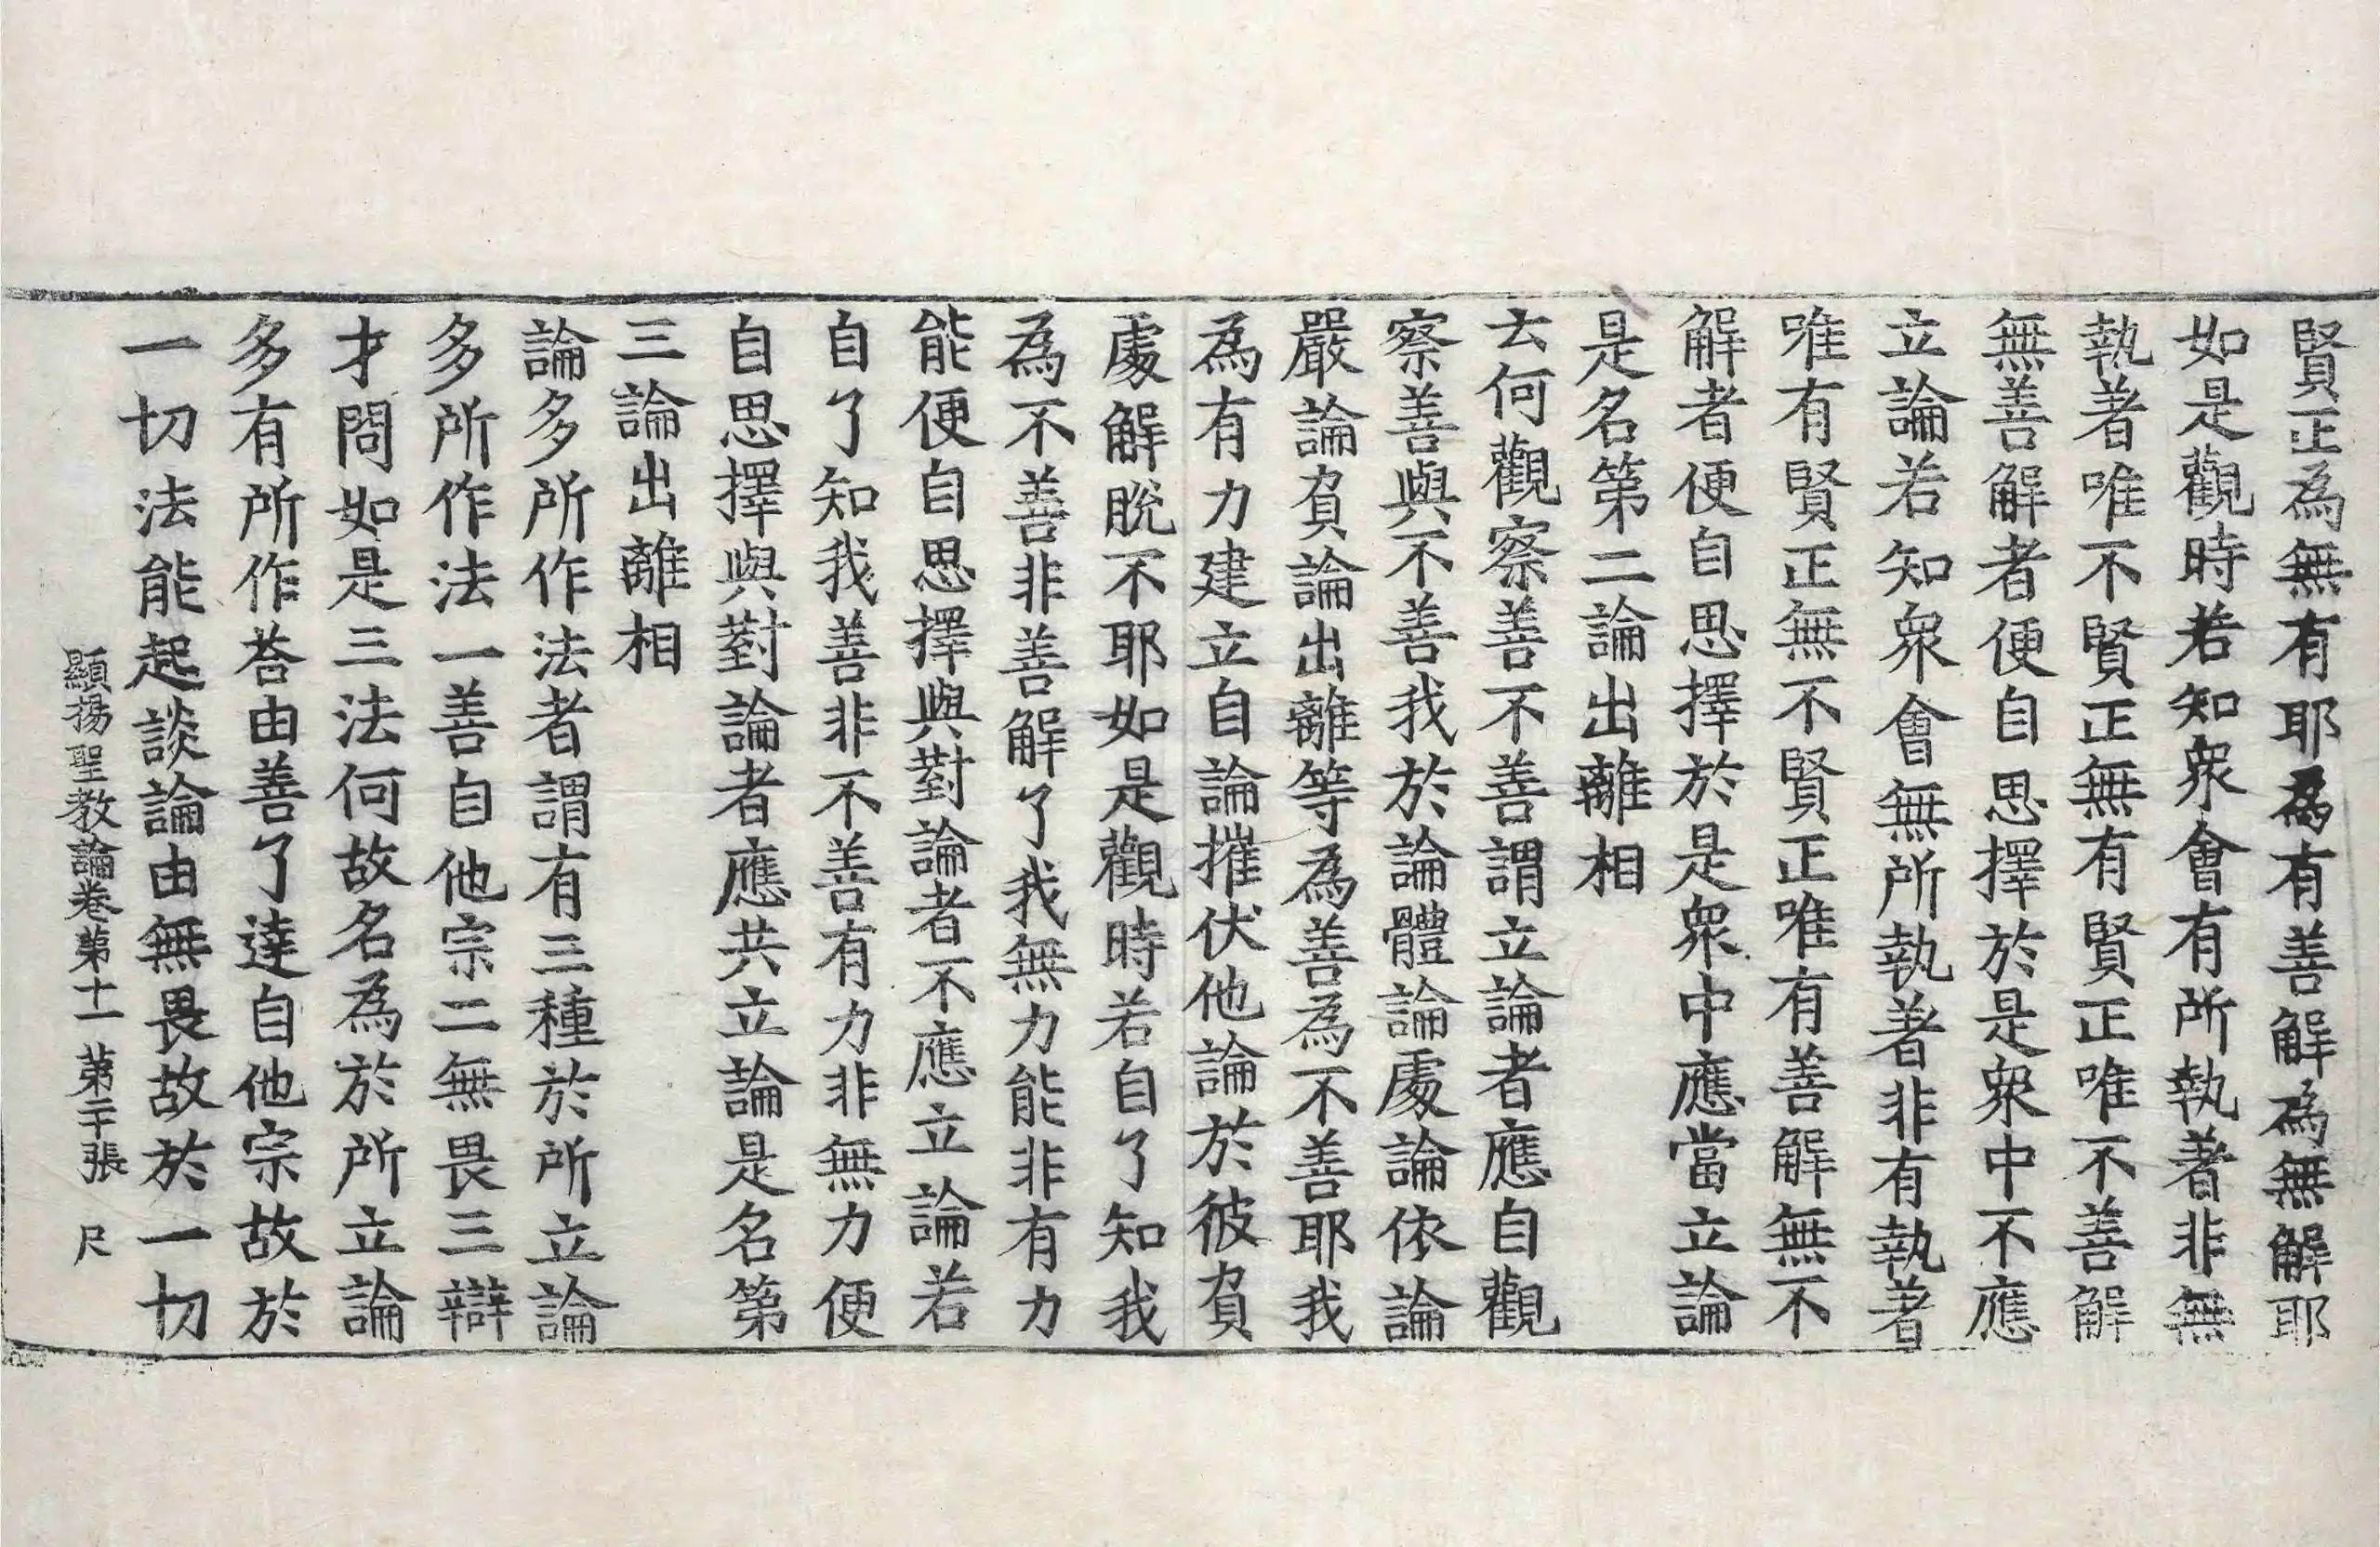 賢正為無有耶為有善解為無解耶
如是觀時若知衆會有所執著非無
執著唯不賢正無有賢正唯不善解
無善解者便自思擇於是衆中不應
立論若知衆會無所執著非有執著
唯有賢正無不賢正唯有善解無不
解者便自思擇於是衆中應當立論
是名第二論出離相
云何觀察善不善謂立論者應自觀
察善與不善我於論體論處論依論
嚴論負論出離等為善為不善耶我
為有力建立自論摧伏他論於彼負
處解脫不耶如是觀時若自了知我
為不善非善解了我無力能非有力
能便自思擇與對論者不應立論若
自了知我善非不善有力非無力便
自思擇與對論者應共立論是名第
三論出離相
論多所作法者謂有三種於所立論
多所作法一善自他宗二無畏三辯
才問如是三法何故名為於所立論
多有所作荅由善了達自他宗故於
一切法能起談論由無畏故於一切
顯揚聖教論卷第十一 第二十張 尺